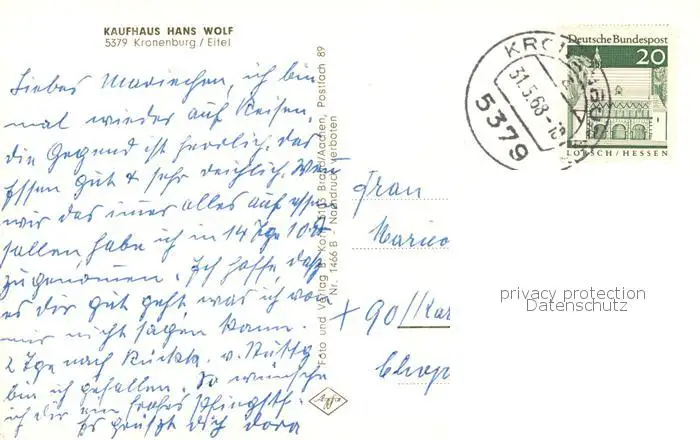 KAUFHAUS HANS WOLF
5379 Kronenburg / Eifel
Liebes Mariechen, ich bin
mal wieder auf Reisen.
die Gegend ist herrlich, das
Essen gut & sehr reichlich. Wenn
wir das immer alles auf essen
sollen habe ich in 14 Tge 10
zugenommen. Ich hoffe, daß
es dir gut geht was ich von
mir nicht sagen kann.
2 Tge nach Rückk. v.
bin ich gefallen. So wünsche
ich dir ein frohes Pfingstf.
Es grüßt dich Dora
Foto und Verlag B. Kor 5105 Brand/Aachen, Postfach 89
Nr. 1466 B - Nachdruck verboten
Agfa
Deutsche Bundespost
20
LORSCH / HESSEN
31.5.68
5379
Frau
+ 90
privacy protection
Datenschutz